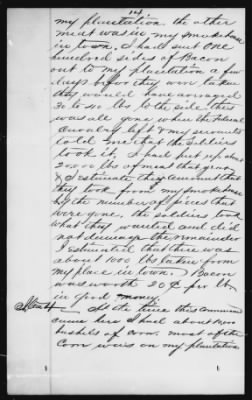 my plantation the other
meat was in my smoke house
in town. I had sent one
hundred sides of Bacon
out to my plantation a few
days before they were taken
they would have averaged
30 to 40 lbs to the side this
was all gone when the Federal
Cavalry left & my servants
told me that the soldiers
took it, I had put up about
20000 lbs of meat this year
& I estimate the amount that
they took from my smoke house
by the number of pieces that
were gone, the soldiers took
what they wanted and did
not the remainder
I estimated that there was
about 1000 lbs taken from
my place in town. Bacon
was worth 20¢ per lb
in good money.
Item 4 At the time this command
came here I had about
bushels of corn. most of the
Corn was on my plantation